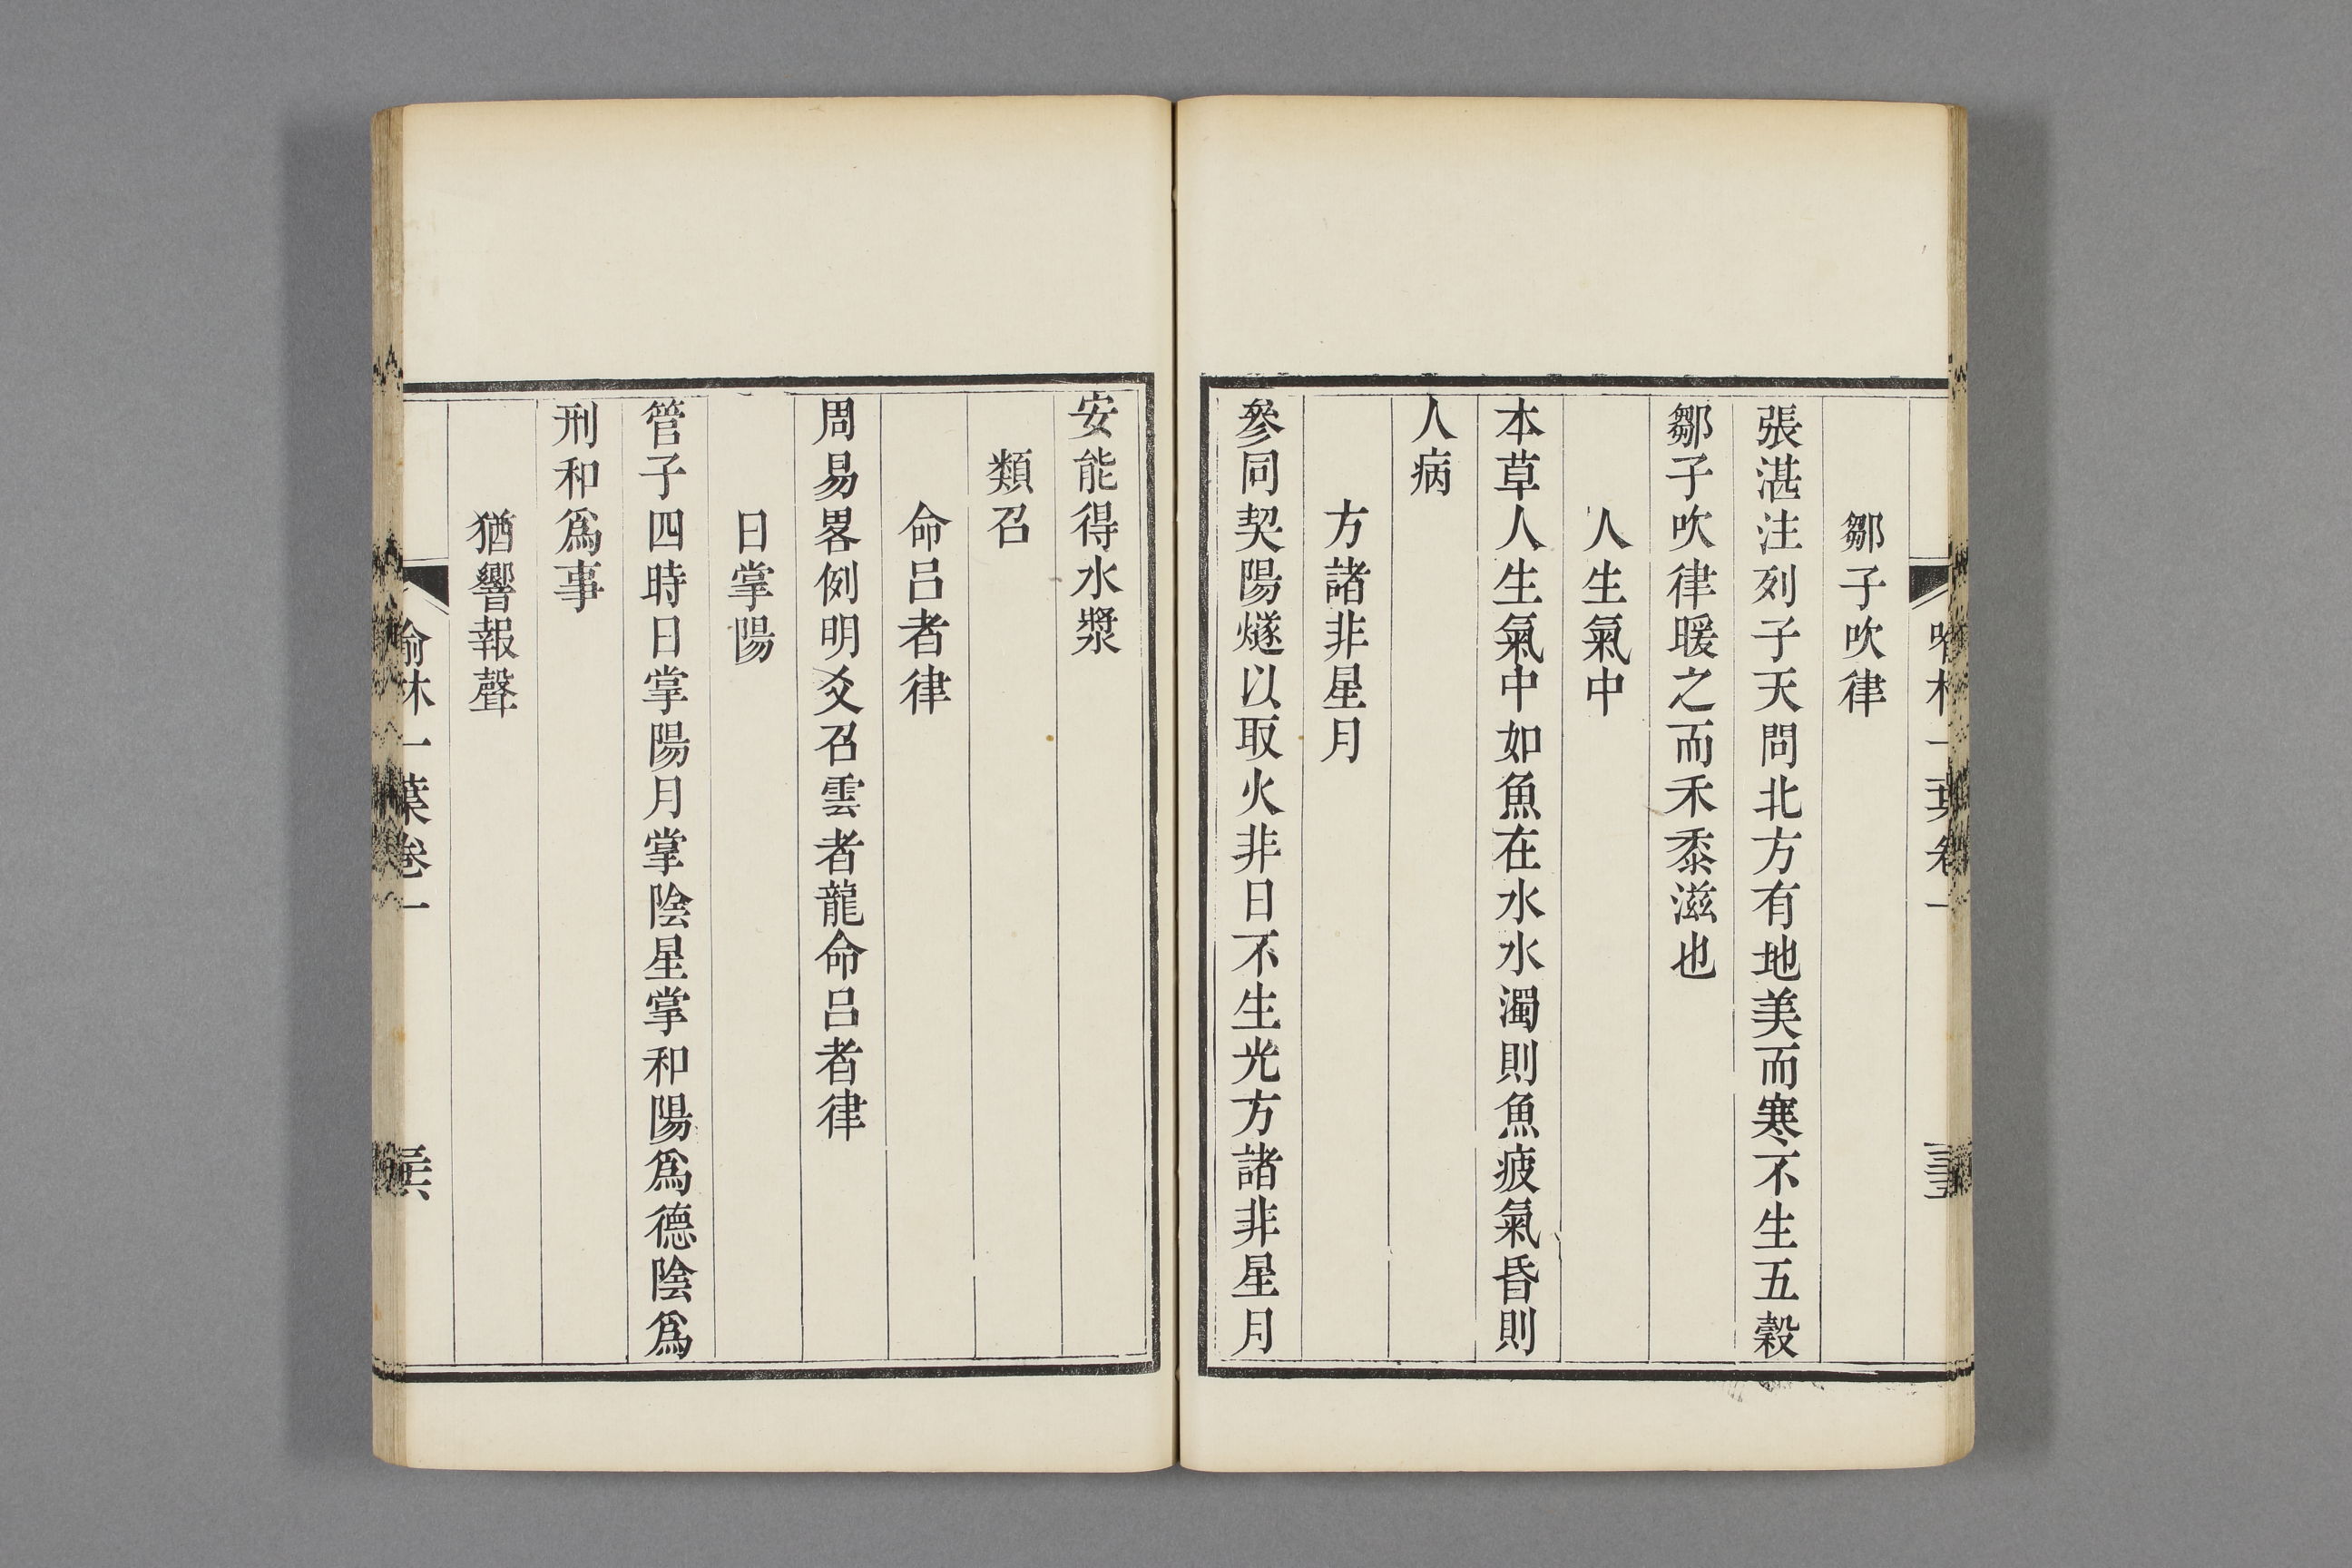 鄒子吹律
張湛注列子天問北方有地美而寒不生五穀
鄒子吹律暖之而禾黍滋也
人生氣中
本草人生氣中如魚在水水濁則魚疲氣昏則
人病
方諸非星月
參同契陽燧以取火非日不生光方諸非星月
安能得水漿
類召
命呂者律
周易畧例明爻召雲者龍命呂者律
日掌陽
管子四時日掌陽月掌陰星掌和陽爲德陰爲
刑和爲事
猶響報聲
喻林一葉卷一